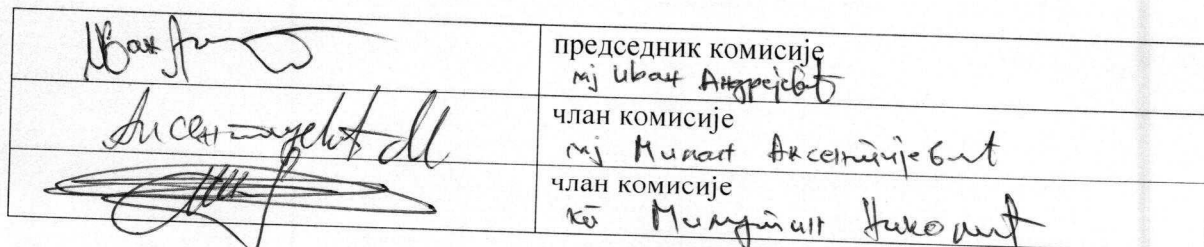 председник комисије
мј Иван Андрејевић
Аксентијевић М
члан комисије
мј Милан Аксентијевић
члан комисије
кп Милутин Николић